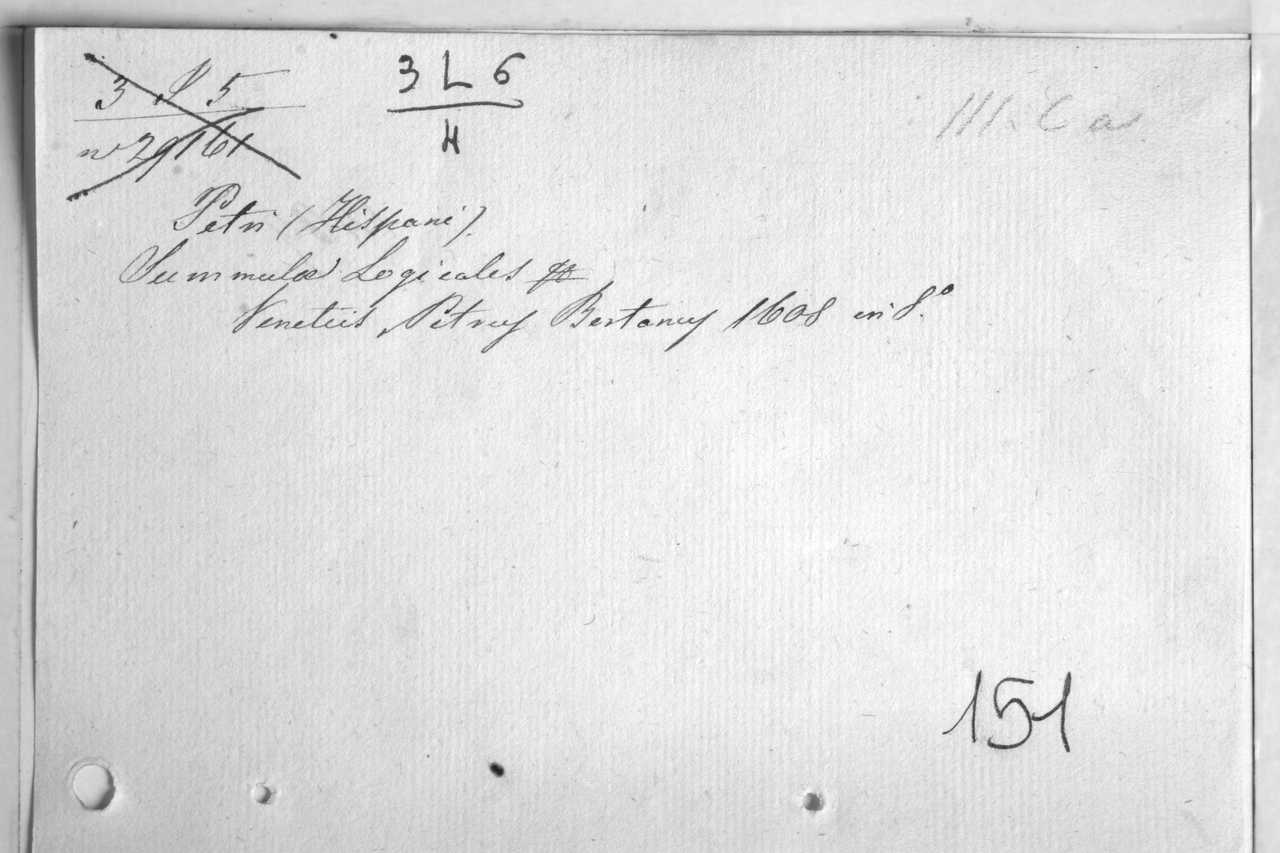 3 L 6
4
III. C a
Petri (Hispani).
Summulæ Logicales
Venetiis, Petrus Bertanus 1608 in 8.º
151